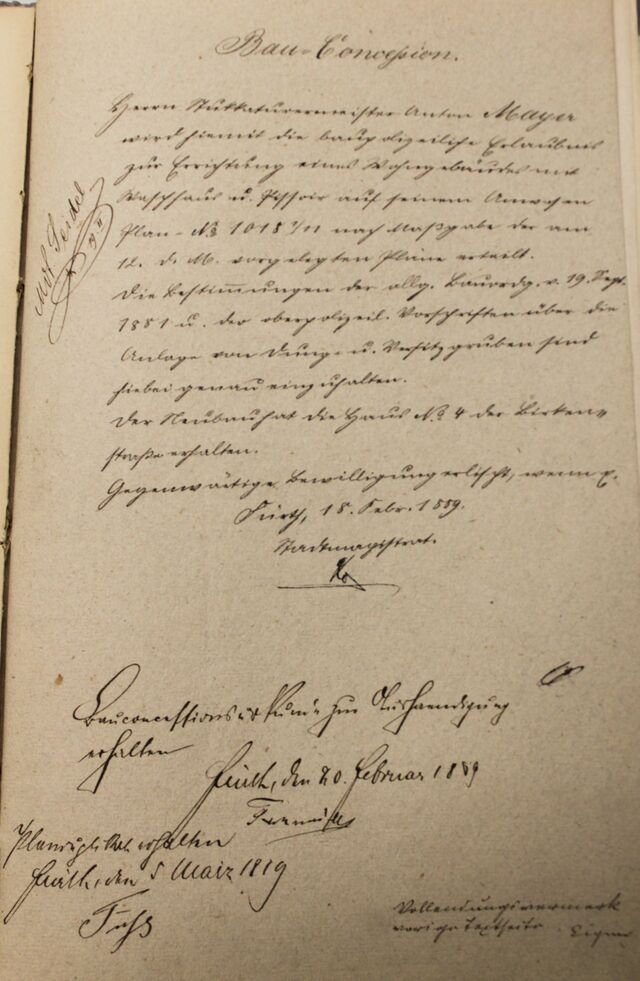 Bau-Concession.
Herrn Stukkaturermeister Anton Mayer
wird hiemit die baupolizeiliche Erlaubnis
zur Errichtung eines Wohngebäudes mit
Waschhaus u. Pissoir auf seinem Anwesen
Plan-No 1018 1/11 nach Maßgabe der am
12. d. M. vorgelegten Pläne erteilt.
Die Bestimmungen der allg. Bauordg. v. 19. Sept.
1881 u. der oberpolizeil. Vorschriften über die
Anlage von Dung- u. Versitzgruben sind
hiebei genau einzuhalten.
Der Neubau hat die Haus No 4 der Birken-
straße erhalten.
Gegenwärtige Bewilligung erlischt, wenn p.
Fürth, 18. Febr. 1889.
Stadtmagistrat.
Seidel
Bauconcessionsurkunde zur Aushaendigung
erhalten
Fürth, den 20. Februar 1889
Planduplikat erhalten
Fürth, den 5 Maerz 1889
Vollendungsvermerk
vorige Textseite.